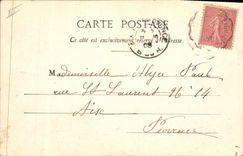 CARTE POSTALE
Ce côté est exclusivement réservé à l'adresse
Mademoiselle Alyce Paul
rue St Laurent No 14
Aix
Provence